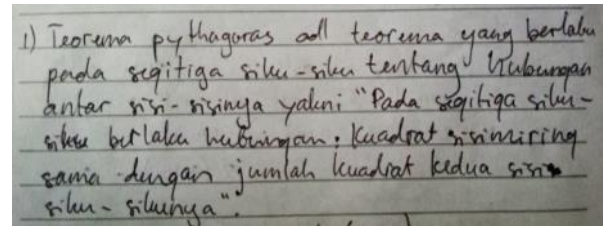 1) Teorema pythagoras adl teorema yang berlaku
pada segitiga siku-siku tentang hubungan
antar sisi-sisinya yakni "Pada segitiga siku-
siku berlaku hubungan: Kuadrat sisi miring
sama dengan jumlah kuadrat kedua sisi
siku-sikunya".